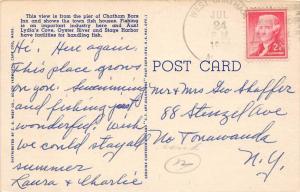 This view is from the pier of Chatham Bars
Inn and shows the town fish house. Fishing
is an important industry here and Aunt
Lydia's Cove, Oyster River and Stage Harbor
have facilities for handling fish.
WEST
JUL
24
2¢
POST CARD
Hi. Here again.
This place grows
on you. Swimming
and fishing just
wonderful. Wish
we could stay all
summer
Laura & Charlie
Mr & Mrs Geo Shaffer
88 Stenzel Ave
No Tonawanda
N.Y.